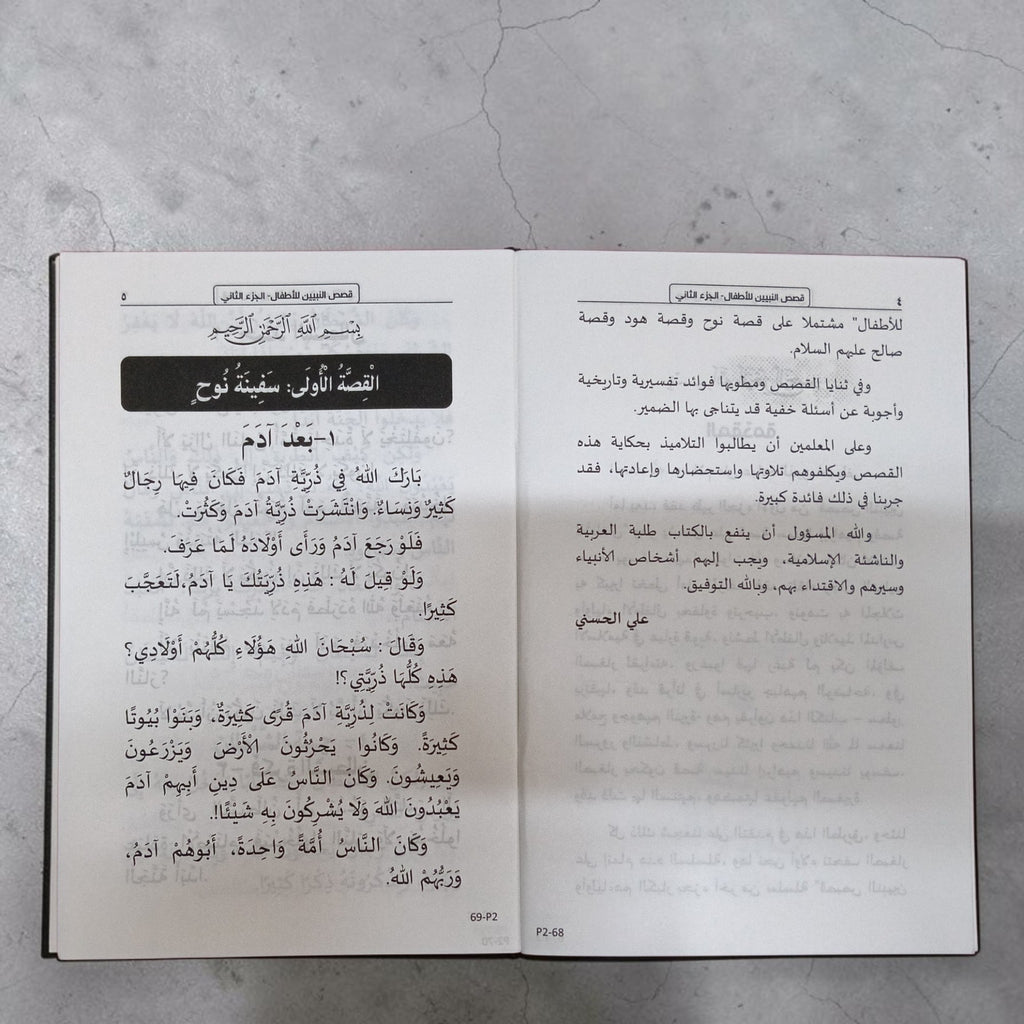 قصص النبيين للأطفال- الجزء الثاني
٤
للأطفال" مشتملا على قصة نوح وقصة هود وقصة
صالح عليهم السلام.
وفي ثنايا القصص ومطويها فوائد تفسيرية وتاريخية
وأجوبة عن أسئلة خفية قد يتناجى بها الضمير.
وعلى المعلمين أن يطالبوا التلاميذ بحكاية هذه
القصص ويكلفوهم تلاوتها واستحضارها وإعادتها، فقد
جربنا في ذلك فائدة كبيرة.
والله المسؤول أن ينفع بالكتاب طلبة العربية
والناشئة الإسلامية، ويحب إليهم أشخاص الأنبياء
وسيرهم والاقتداء بهم، وبالله التوفيق.
علي الحسني
P2-68
قصص النبيين للأطفال- الجزء الثاني
٥
بِسْمِ اللَّهِ الرَّحْمَٰنِ الرَّحِيمِ
الْقِصَّةُ الْأُولَى: سَفِينَةُ نُوحٍ
١-بَعْدَ آدَمَ
بَارَكَ اللهُ فِي ذُرِّيَّةِ آدَمَ فَكَانَ فِيهَا رِجَالٌ
كَثِيرٌ وَنِسَاءٌ. وَانْتَشَرَتْ ذُرِّيَّةُ آدَمَ وَكَثُرَتْ.
فَلَوْ رَجَعَ آدَمُ وَرَأَى أَوْلَادَهُ لَمَا عَرَفَ.
وَلَوْ قِيلَ لَهُ : هَذِهِ ذُرِّيَّتُكَ يَا آدَمُ،لَتَعَجَّبَ
كَثِيرًا.
وَقَالَ : سُبْحَانَ اللهِ هَؤُلَاءِ كُلُّهُمْ أَوْلَادِي؟
هَذِهِ كُلُّهَا ذُرِّيَّتِي؟!
وَكَانَتْ لِذُرِّيَّةِ آدَمَ قُرًى كَثِيرَةٌ، وَبَنَوْا بُيُوتًا
كَثِيرَةً. وَكَانُوا يَحْرُثُونَ الْأَرْضَ وَيَزْرَعُونَ
وَيَعِيشُونَ. وَكَانَ النَّاسُ عَلَى دِينِ أَبِيهِمْ آدَمَ
يَعْبُدُونَ اللهَ وَلَا يُشْرِكُونَ بِهِ شَيْئًا!.
وَكَانَ النَّاسُ أُمَّةً وَاحِدَةً، أَبُوهُمْ آدَمُ،
وَرَبُّهُمُ اللهُ.
69-P2